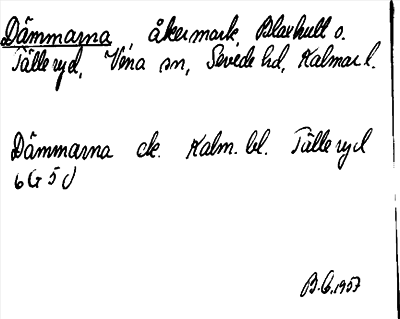 Dämmarna, åkermark, Blavhult o.
Tälleryd, Vena sn, Sevede hd, Kalmar l.
Dämmarna ek. Kalm. bl. Tälleryd
6G5d
B.G. 1957